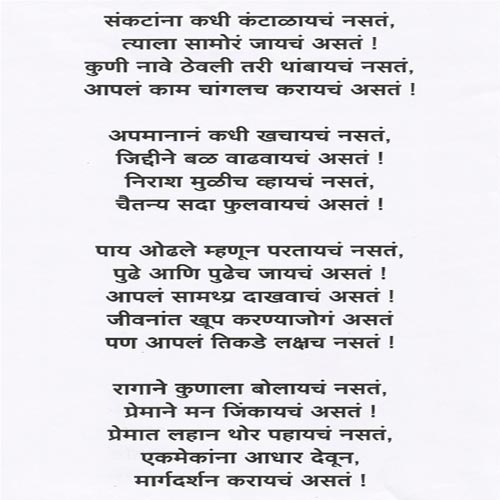 संकटांना कधी कंटाळायचं नसतं,
त्याला सामोरं जायचं असतं !
कुणी नावे ठेवली तरी थांबायचं नसतं,
आपलं काम चांगलच करायचं असतं !
अपमानानं कधी खचायचं नसतं,
जिद्दीने बळ वाढवायचं असतं !
निराश मुळीच व्हायचं नसतं,
चैतन्य सदा फुलवायचं असतं !
पाय ओढले म्हणून परतायचं नसतं,
पुढे आणि पुढेच जायचं असतं !
आपलं सामथ्र्य दाखवाचं असतं !
जीवनांत खूप करण्याजोगं असतं
पण आपलं तिकडे लक्षच नसतं !
रागाने कुणाला बोलायचं नसतं,
प्रेमाने मन जिंकायचं असतं !
प्रेमात लहान थोर पहायचं नसतं,
एकमेकांना आधार देवून,
मार्गदर्शन करायचं असतं !